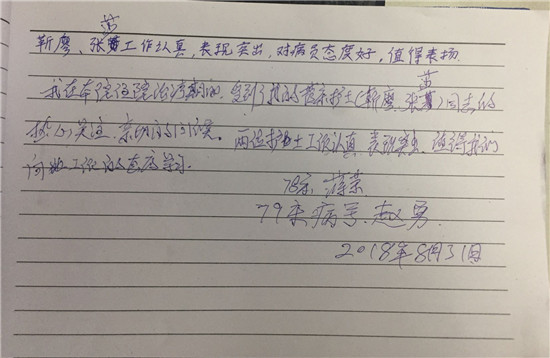 靳廖、张黄工作认真,表现突出,对病员态度好,值得表扬
我在本院住院治疗期间,受到了我的 护士(靳廖、张黄)同志的
关注,亲切的问候。两位护士工作认真,表现突出,值得我们
向她工作的态度学习.
78床
79床病号.赵勇.
2018年8月31日